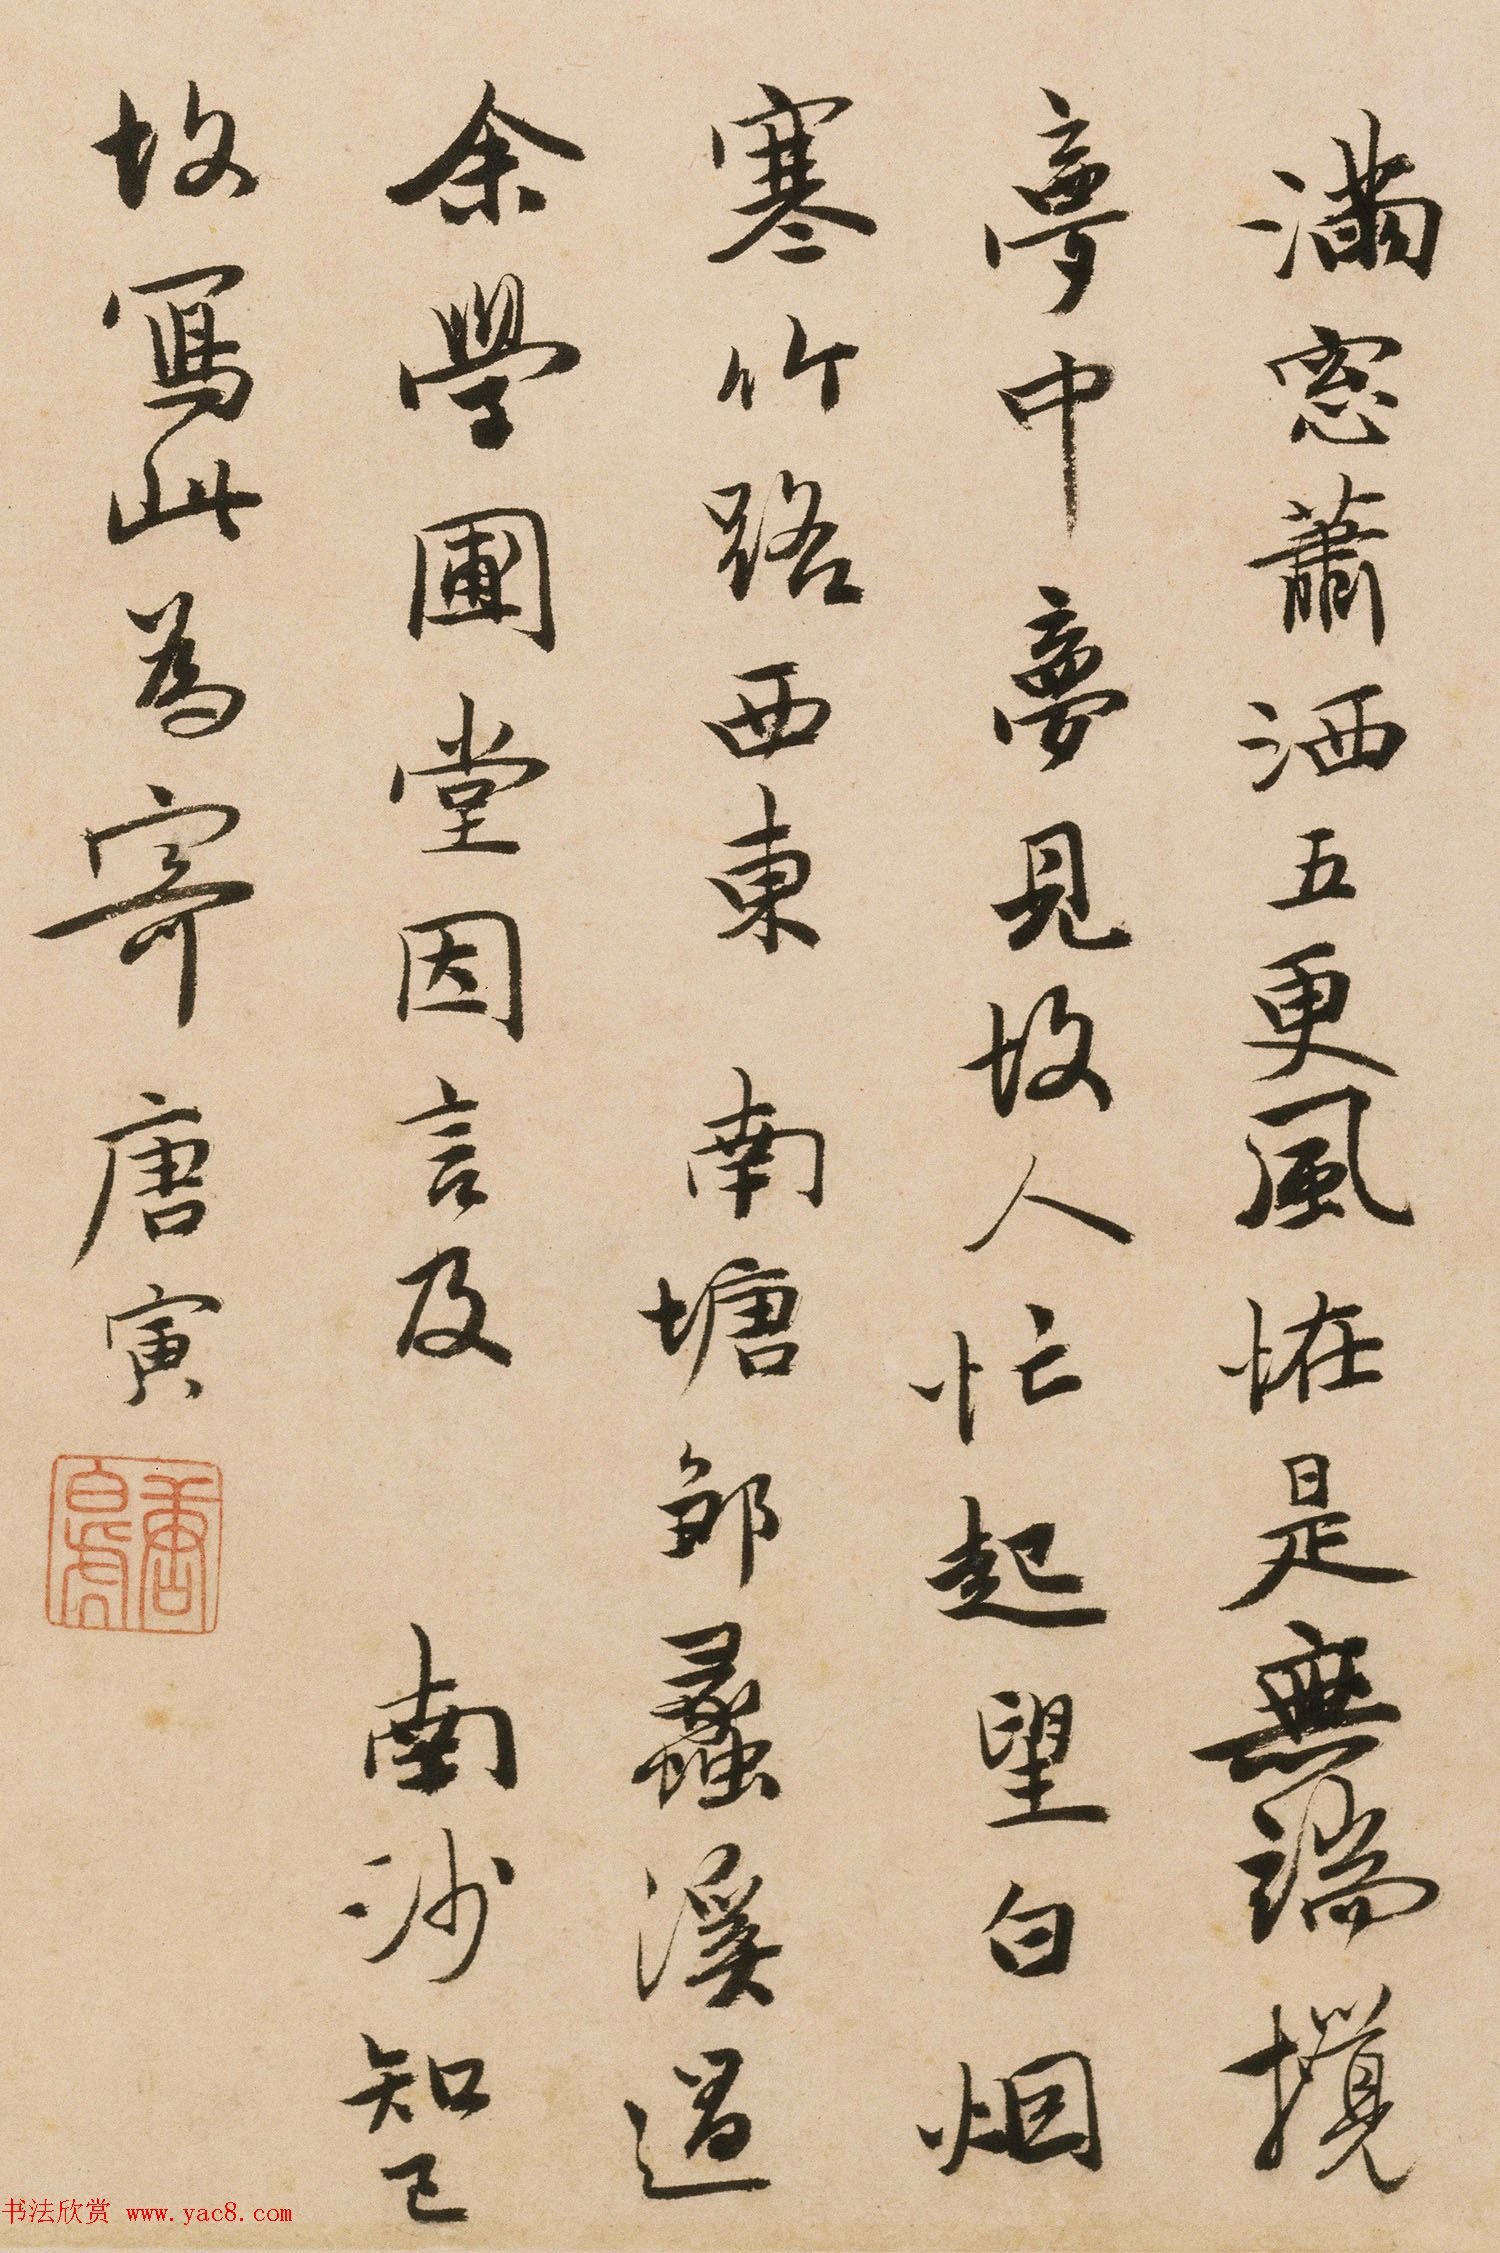 滿窓蕭洒五更風恠是無端攪
夢中夢見故人忙起望白烟
寒竹路西東 南塘邹蠡溪過
余學圃堂因言及 南沙知已
故寫此為寄唐寅
唐白虎
书法欣赏 www.yac8.com